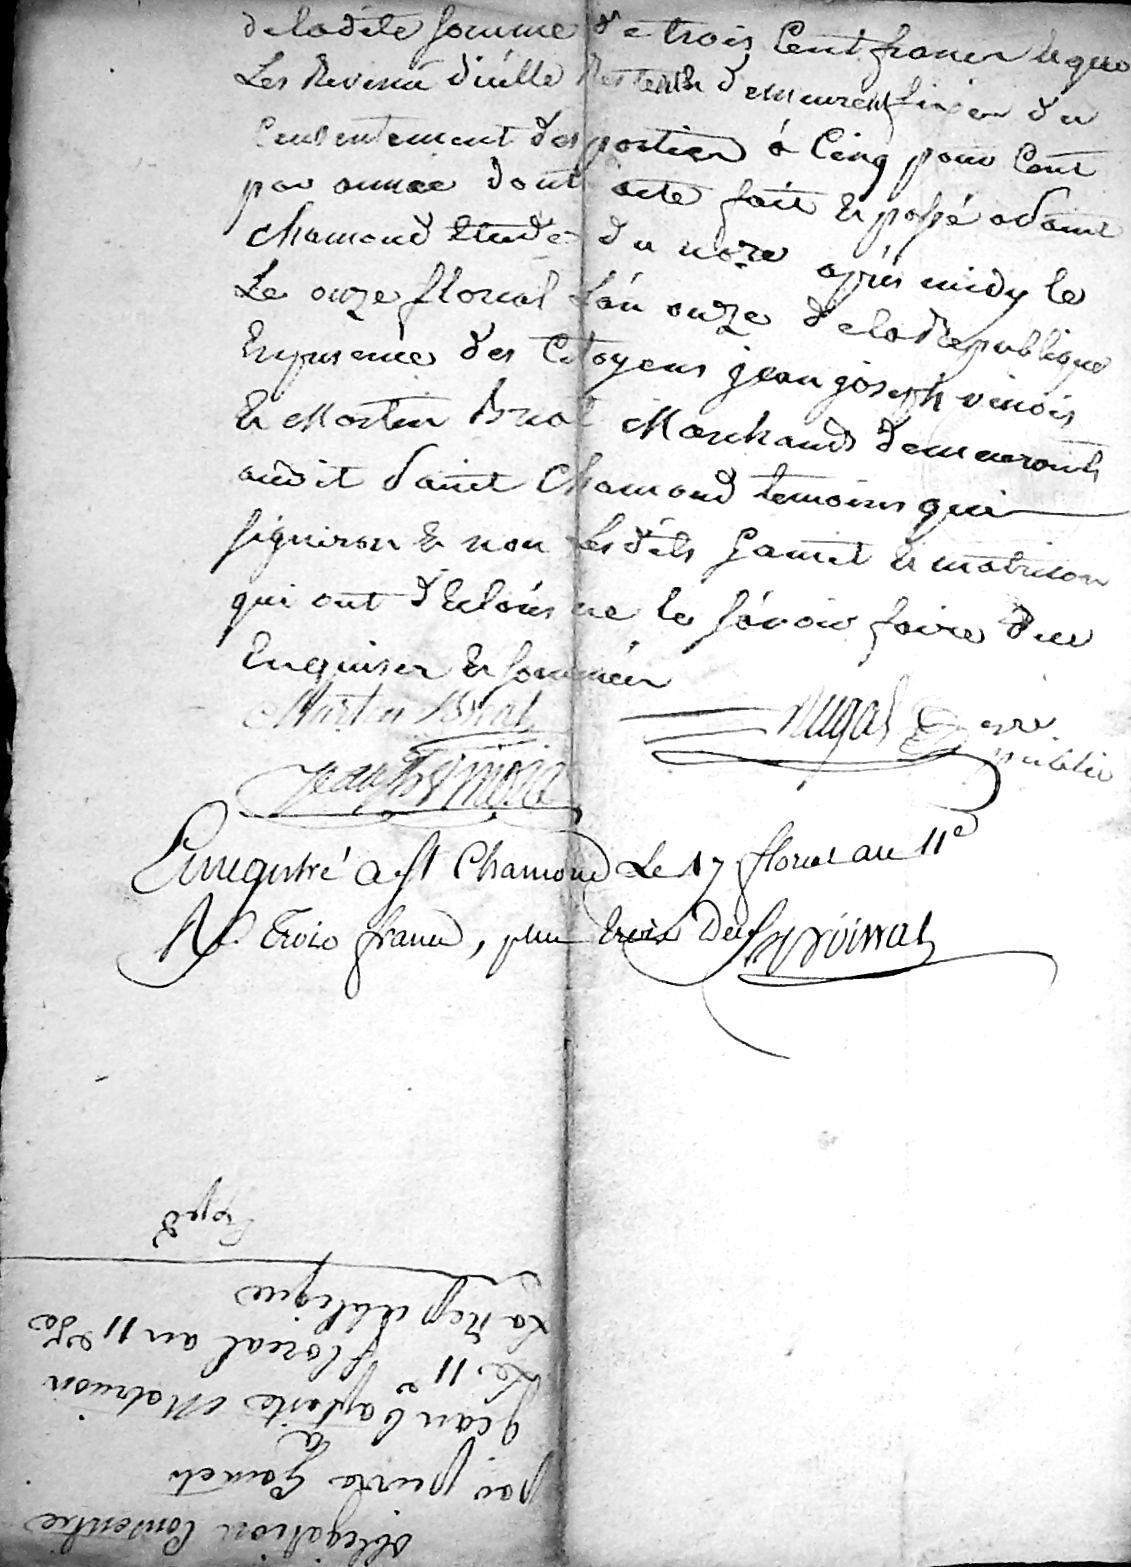 de ladite somme de trois Cent francs & que
Les Revenu d'icelle Restente demeurent fixer du
Consentement des parties à Cinq pour Cent
par année dont acte fait & passé a Saint
chamond Etude du no.re après midy le
Le onze floreal L'an onze de la Republique
En presence des Citoyens jean joseph vinois
& Martin Brial Marchands demeurants
audit Saint Chamond temoins qui
signeron & non Lesdits & matricon
qui ont déclarés ne le sçavoir faire due
Enquiser & sommées
Martin Brial
not.re
public
Enregistré a St Chamond Le 17 floreal an 11e
R. trois francs, plus trois De
obligation Consentie
par pierre
à
jean baptiste Matricon
Le 11e floreal an 11 de
La Republique
Exped